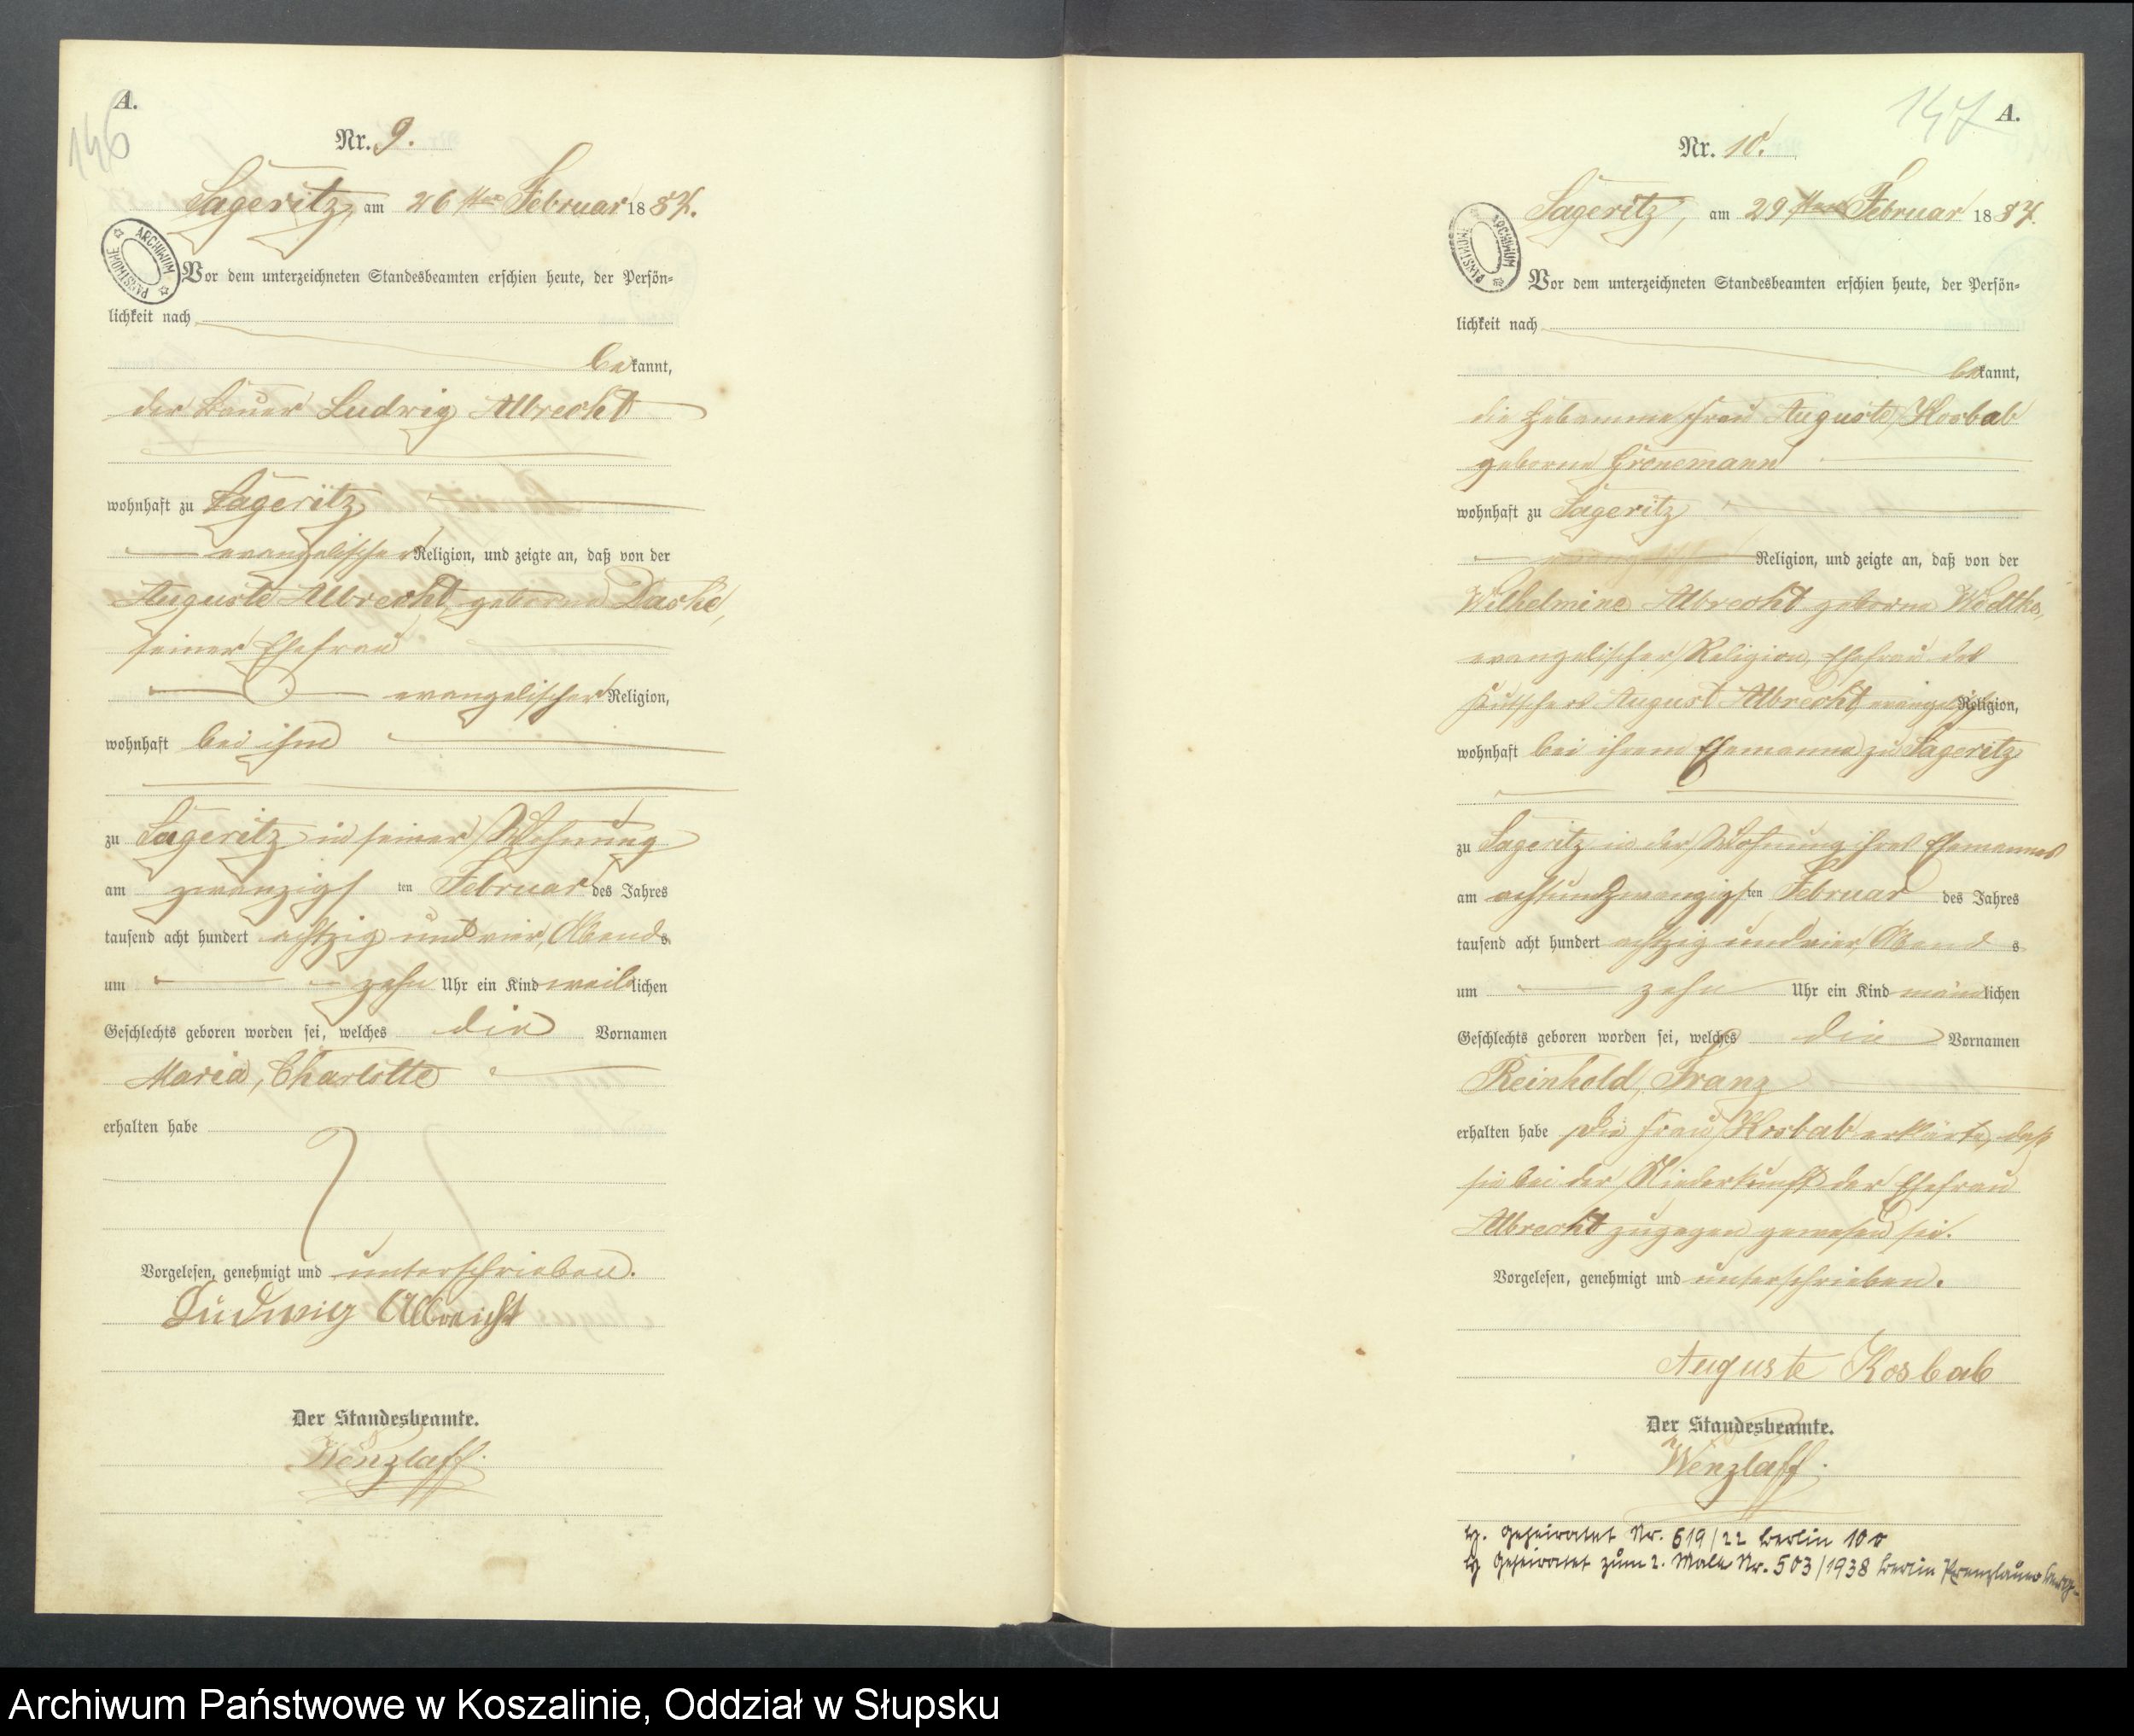 A.
146
Nr. 9.
Sageritz, am 26ten Februar 1884.
ARCHIWUM PAŃSTWOWE
Vor dem unterzeichneten Standesbeamten erschien heute, der Persön-
lichkeit nach
bekannt,
der Bauer Ludwig Albrecht
wohnhaft zu Sageritz
evangelischer Religion, und zeigte an, daß von der
Auguste Albrecht, geborene Daske,
seiner Ehefrau
evangelischer Religion,
wohnhaft bei ihm
zu Sageritz in seiner Wohnung
am zwanzigsten Februar des Jahres
tausend acht hundert achtzig und vier, Abends
um zehn Uhr ein Kind weiblichen
Geschlechts geboren worden sei, welches die Vornamen
Maria, Charlotte
erhalten habe
Vorgelesen, genehmigt und unterschrieben.
Ludwig Albrecht
Der Standesbeamte.
Wenzlaff.
147 A.
Nr. 10.
Sageritz, am 29ten Februar 1884.
ARCHIWUM PAŃSTWOWE
Vor dem unterzeichneten Standesbeamten erschien heute, der Persön-
lichkeit nach
bekannt,
die Hebamme Frau Auguste Kosbab
geborene Gronemann
wohnhaft zu Sageritz
Religion, und zeigte an, daß von der
Wilhelmine Albrecht geborene Wodtke,
evangelischer Religion, Ehefrau des
Kutschers August Albrecht, evangelisch Religion,
wohnhaft bei ihrem Ehemanne zu Sageritz
zu Sageritz in der Wohnung ihres Ehemannes
am achtundzwanzigsten Februar des Jahres
tausend acht hundert achtzig und vier, Abends
um zehn Uhr ein Kind männlichen
Geschlechts geboren worden sei, welches die Vornamen
Reinhold, Franz
erhalten habe. Die Frau Kosbab erklärte, daß
sie bei der Niederkunft der Ehefrau
Albrecht zugegen gewesen sei.
Vorgelesen, genehmigt und unterschrieben.
Auguste Kosbab
Der Standesbeamte.
Wenzlaff.
geheiratet Nr. 619/22 Berlin 10a
geheiratet zum 2. Male Nr. 503/1938 Berlin Prenzlauer Berg.
Archiwum Państwowe w Koszalinie, Oddział w Słupsku